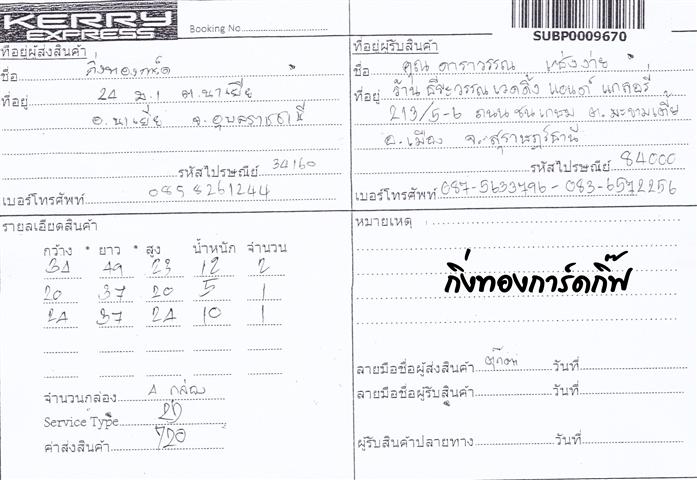 KERRY
EXPRESS
Booking No
SUBP0009670
ที่อยู่ผู้ส่งสินค้า
ชื่อ กิ่งทองการ์ด
ที่อยู่ 24 ม.1 ต.นาเยีย
อ.นาเยีย จ.อุบลราชธานี
รหัสไปรษณีย์ 34160
เบอร์โทรศัพท์ 0858261244
ที่อยู่ผู้รับสินค้า
ชื่อ คุณ ดาราวรรณ
ที่อยู่ ร้าน ธีระวรรณ เวดดิ้ง แอนด์ แกลอรี่
213/5-6 ถนน ชนเกษม ต. มะขามเตี้ย
อ.เมือง จ.สุราษฎร์ธานี
รหัสไปรษณีย์ 84000
เบอร์โทรศัพท์ 087-5633796 - 083-6572256
รายละเอียดสินค้า
กว้าง * ยาว * สูง น้ำหนัก จำนวน
34 49 23 12 2
20 37 20 5 1
24 37 24 10 1
จำนวนกล่อง 4 กล่อง
Service Type 2D
ค่าส่งสินค้า 720
หมายเหตุ
กิ่งทองการ์ดกิ๊ฟ
ลายมือชื่อผู้ส่งสินค้า วันที่
ลายมือชื่อผู้รับสินค้า วันที่
ผู้รับสินค้าปลายทาง วันที่